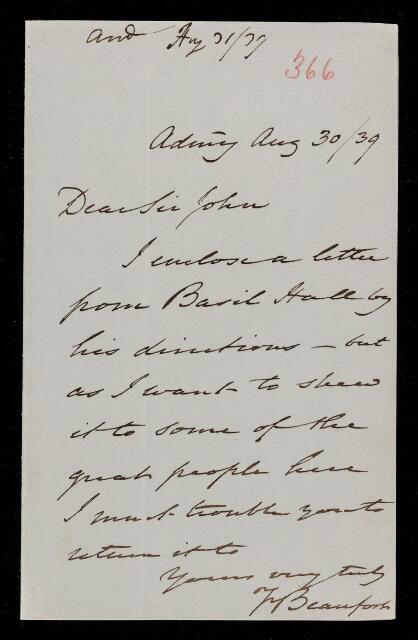 and Ag 31/39
366
Admy Aug 30/39
Dear Sir John
I enclose a letter
from Basil Hall by
his directions – but
as I want to shew
it to some of the
great people here
I must trouble you to
return it to
Yours very truly
F Beaufort